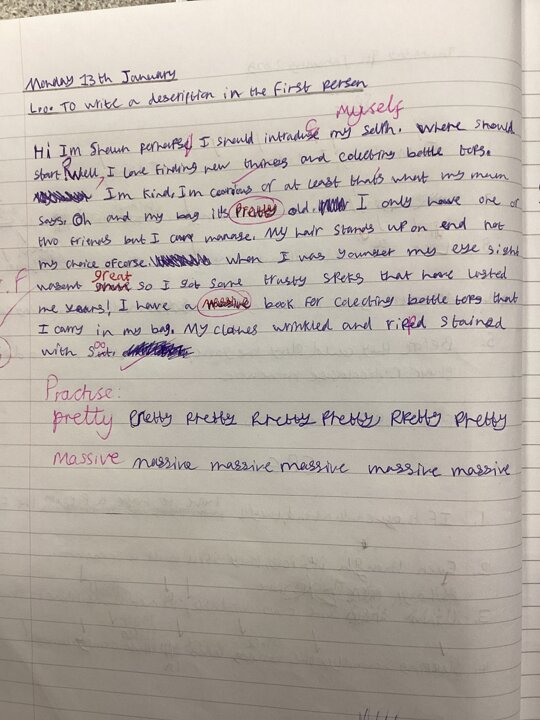 Monday 13th January
L.o. To write a description in the first person
myself
Hi Im Shaun I should introduse c my selfh. where should
start? Well, I love finding new things and colecting bottle tops.
Im kind, Im or at least that's what my mum
says. Oh and my bag its pretty old. I only have one or
two friends but I can manage. My hair stands up on end not
my choice ofcorse. when I was younger my eye sight
great
F
wasent so I got some trusty specs that have lasted
me years! I have a massive book for colecting bottle tops that
I carry in my bag. My clothes wrinkled and ripped stained
with
Practise:
pretty pretty pretty pretty pretty pretty pretty
massive massive massive massive massive massive